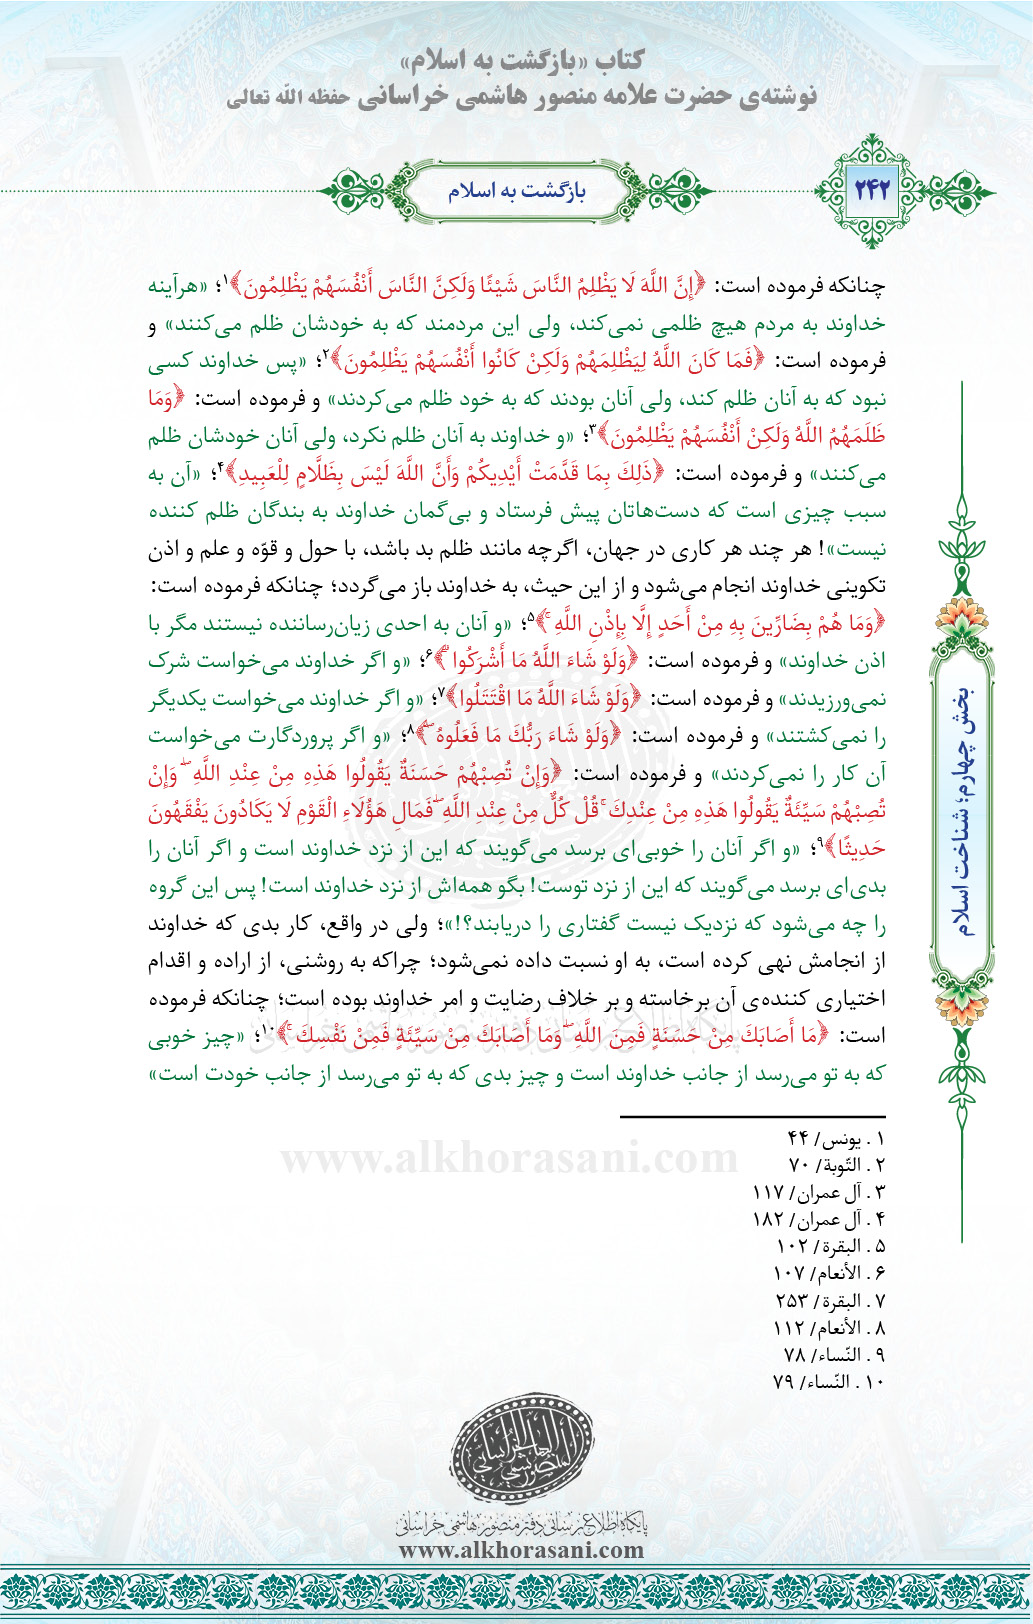 کتاب «بازگشت به اسلام»
نوشته‌ی حضرت علامه منصور هاشمی خراسانی حفظه الله تعالی
۲۴۲
بازگشت به اسلام
چنانکه فرموده است: ﴿إِنَّ اللَّهَ لَا يَظْلِمُ النَّاسَ شَيْئًا وَلَكِنَّ النَّاسَ أَنْفُسَهُمْ يَظْلِمُونَ﴾۱؛ «هرآینه
خداوند به مردم هیچ ظلمی نمی‌کند، ولی این مردمند که به خودشان ظلم می‌کنند» و
فرموده است: ﴿فَمَا كَانَ اللَّهُ لِيَظْلِمَهُمْ وَلَكِنْ كَانُوا أَنْفُسَهُمْ يَظْلِمُونَ﴾۲؛ «پس خداوند کسی
نبود که به آنان ظلم کند، ولی آنان بودند که به خود ظلم می‌کردند» و فرموده است: ﴿وَمَا
ظَلَمَهُمُ اللَّهُ وَلَكِنْ أَنْفُسَهُمْ يَظْلِمُونَ﴾۳؛ «و خداوند به آنان ظلم نکرد، ولی آنان خودشان ظلم
می‌کنند» و فرموده است: ﴿ذَلِكَ بِمَا قَدَّمَتْ أَيْدِيكُمْ وَأَنَّ اللَّهَ لَيْسَ بِظَلَّامٍ لِلْعَبِيدِ﴾۴؛ «آن به
سبب چیزی است که دست‌هاتان پیش فرستاد و بی‌گمان خداوند به بندگان ظلم کننده
نیست»! هر چند هر کاری در جهان، اگرچه مانند ظلم بد باشد، با حول و قوّه و علم و اذن
تکوینی خداوند انجام می‌شود و از این حیث، به خداوند باز می‌گردد؛ چنانکه فرموده است:
﴿وَمَا هُمْ بِضَارِّينَ بِهِ مِنْ أَحَدٍ إِلَّا بِإِذْنِ اللَّهِ ۚ﴾۵؛ «و آنان به احدی زیان‌رساننده نیستند مگر با
اذن خداوند» و فرموده است: ﴿وَلَوْ شَاءَ اللَّهُ مَا أَشْرَكُوا ۗ﴾۶؛ «و اگر خداوند می‌خواست شرک
نمی‌ورزیدند» و فرموده است: ﴿وَلَوْ شَاءَ اللَّهُ مَا اقْتَتَلُوا﴾۷؛ «و اگر خداوند می‌خواست یکدیگر
را نمی‌کشتند» و فرموده است: ﴿وَلَوْ شَاءَ رَبُّكَ مَا فَعَلُوهُ ۖ﴾۸؛ «و اگر پروردگارت می‌خواست
آن کار را نمی‌کردند» و فرموده است: ﴿وَإِنْ تُصِبْهُمْ حَسَنَةٌ يَقُولُوا هَذِهِ مِنْ عِنْدِ اللَّهِ ۖ وَإِنْ
تُصِبْهُمْ سَيِّئَةٌ يَقُولُوا هَذِهِ مِنْ عِنْدِكَ ۚ قُلْ كُلٌّ مِنْ عِنْدِ اللَّهِ ۖ فَمَالِ هَؤُلَاءِ الْقَوْمِ لَا يَكَادُونَ يَفْقَهُونَ
حَدِيثًا﴾۹؛ «و اگر آنان را خوبی‌ای برسد می‌گویند که این از نزد خداوند است و اگر آنان را
بدی‌ای برسد می‌گویند که این از نزد توست! بگو همه‌اش از نزد خداوند است! پس این گروه
را چه می‌شود که نزدیک نیست گفتاری را دریابند؟!»؛ ولی در واقع، کار بدی که خداوند
از انجامش نهی کرده است، به او نسبت داده نمی‌شود؛ چراکه به روشنی، از اراده و اقدام
اختیاری کننده‌ی آن برخاسته و بر خلاف رضایت و امر خداوند بوده است؛ چنانکه فرموده
است: ﴿مَا أَصَابَكَ مِنْ حَسَنَةٍ فَمِنَ اللَّهِ ۖ وَمَا أَصَابَكَ مِنْ سَيِّئَةٍ فَمِنْ نَفْسِكَ ۚ﴾۱۰؛ «چیز خوبی
که به تو می‌رسد از جانب خداوند است و چیز بدی که به تو می‌رسد از جانب خودت است»
بخش چهارم؛ شناخت اسلام
www.alkhorasani.com
۱. یونس/ ۴۴
۲. التّوبة/ ۷۰
۳. آل عمران/ ۱۱۷
۴. آل عمران/ ۱۸۲
۵. البقرة/ ۱۰۲
۶. الأنعام/ ۱۰۷
۷. البقرة/ ۲۵۳
۸. الأنعام/ ۱۱۲
۹. النّساء/ ۷۸
۱۰. النّساء/ ۷۹
پایگاه اطلاع‌رسانی دفتر منصور هاشمی خراسانی
www.alkhorasani.com